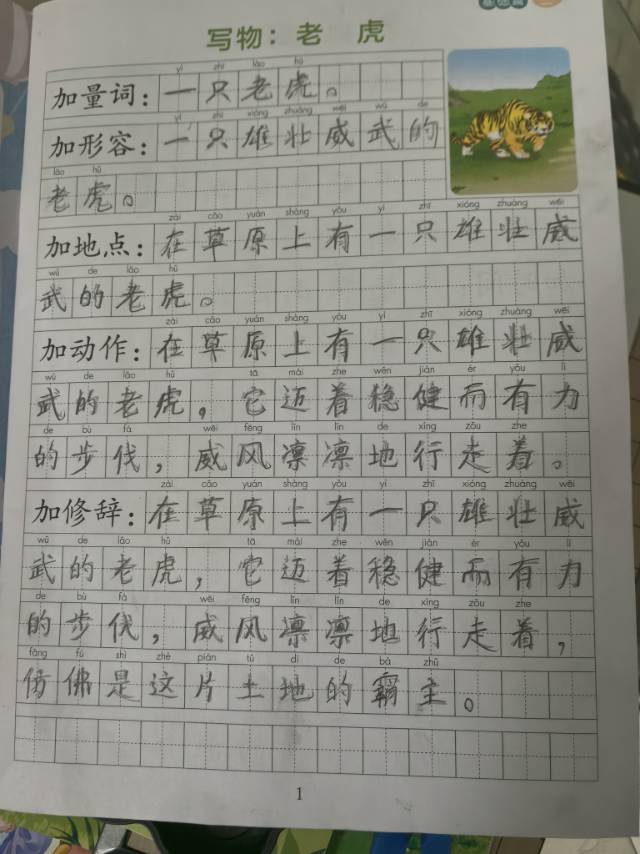 写物：老 虎
yì zhī lǎo hǔ
加量词：一只老虎。
yì zhī xióng zhuàng wēi wǔ de
加形容：一只雄壮威武的
lǎo hǔ
老虎。
zài cǎo yuán shàng yǒu yì zhī xióng zhuàng wēi
加地点：在草原上有一只雄壮威
wǔ de lǎo hǔ
武的老虎。
zài cǎo yuán shàng yǒu yì zhī xióng zhuàng wēi
加动作：在草原上有一只雄壮威
wǔ de lǎo hǔ tā mài zhe wěn jiàn ér yǒu lì
武的老虎，它迈着稳健而有力
de bù fá wēi fēng lǐn lǐn de xíng zǒu zhe
的步伐，威风凛凛地行走着。
zài cǎo yuán shàng yǒu yì zhī xióng zhuàng wēi
加修辞：在草原上有一只雄壮威
wǔ de lǎo hǔ tā mài zhe wěn jiàn ér yǒu lì
武的老虎，它迈着稳健而有力
de bù fá wēi fēng lǐn lǐn de xíng zǒu zhe
的步伐，威风凛凛地行走着，
fǎng fú shì zhè piàn tǔ dì de bà zhǔ
仿佛是这片土地的霸主。
1